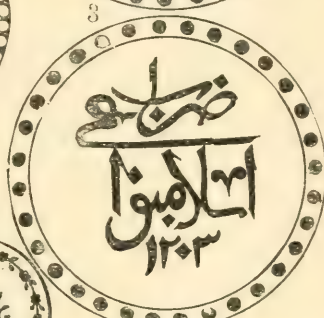 ضرب في
اسلامبول
١٢٠٣